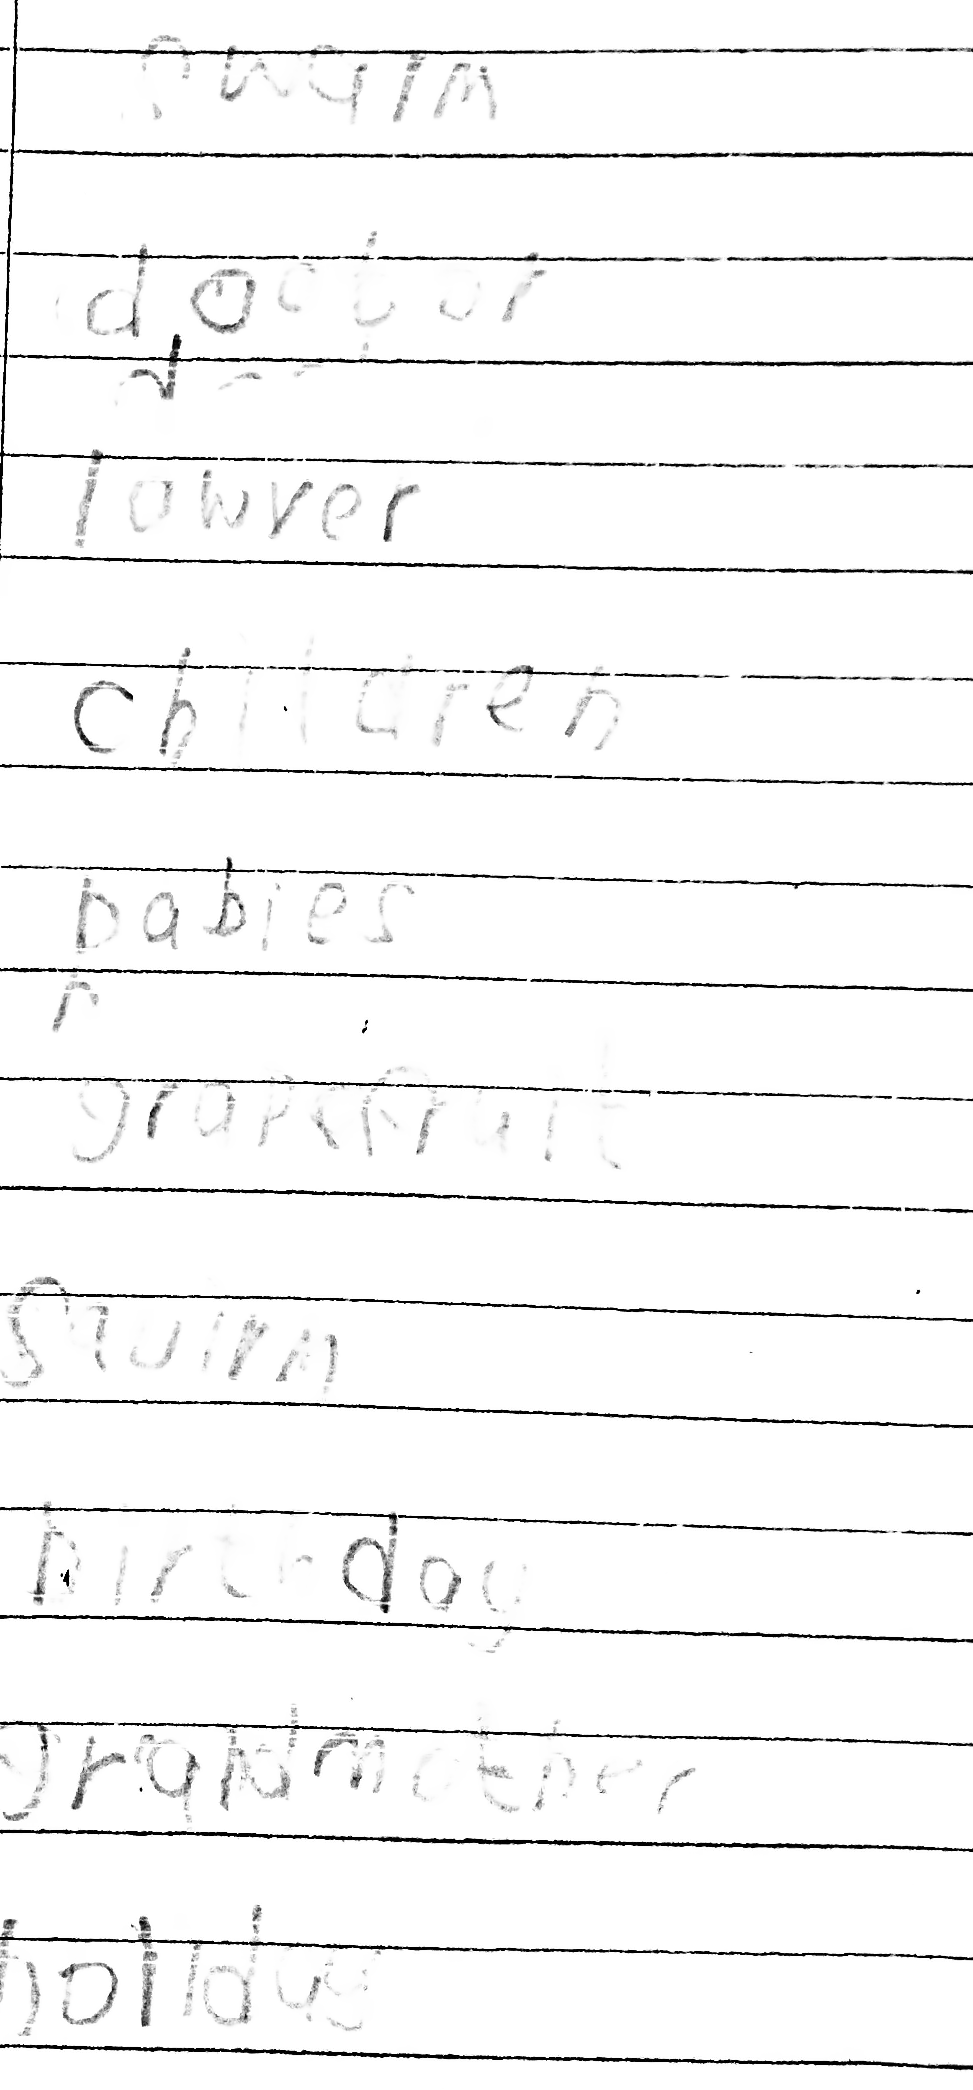 doctor
lowyer
children
babies
r
grapefruit
squirm
birthday
grandmother
holiday